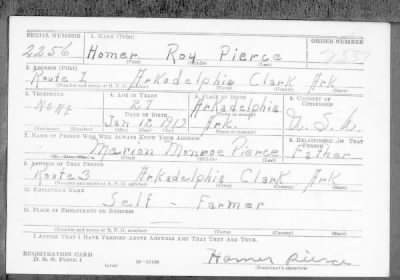 SERIAL NUMBER 1. NAME (Print) ORDER NUMBER
2256 Homer Roy Pierce
(First) (Middle) (Last)
2. ADDRESS (Print)
Route 1 Arkadelphia Clark Ark
(Number and street or R. F. D. number) (Town) (County) (State)
3. TELEPHONE 4. AGE IN YEARS 5. PLACE OF BIRTH 6. COUNTRY OF CITIZENSHIP
NONE 27 Arkadelphia
DATE OF BIRTH (Town or county)
Jan 12 1913 Ark. U.S.A.
(Exchange) (Number) (Mo.) (Day) (Yr.) (State or country)
7. NAME OF PERSON WHO WILL ALWAYS KNOW YOUR ADDRESS 8. RELATIONSHIP OF THAT PERSON
Marion Monroe Pierce Father
(First) (Middle) (Last)
9. ADDRESS OF THAT PERSON
Route 3 Arkadelphia Clark Ark
(Number and street or R. F. D. number) (Town) (County) (State)
10. EMPLOYER'S NAME
Self - Farmer
11. PLACE OF EMPLOYMENT OR BUSINESS
(Number and street or R. F. D. number) (Town) (County) (State)
I AFFIRM THAT I HAVE VERIFIED ABOVE ANSWERS AND THAT THEY ARE TRUE.
REGISTRATION CARD
D. S. S. Form 1 Homer Pierce
(Registrant's signature)